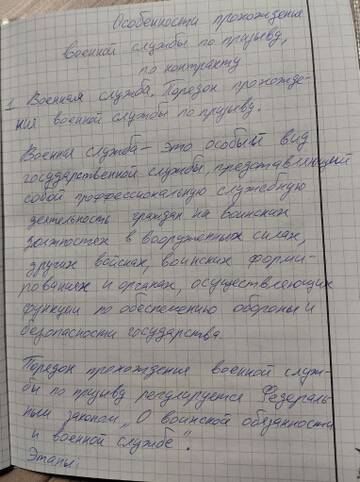 Особенности прохождения
военной службы по призыву,
по контракту
1. Военная служба. Порядок прохожде-
ния военной службы по призыву.
Военная служба - это особый вид
государственной службы, представляющий
собой профессиональную служебную
деятельность граждан на воинских
должностях в вооружённых силах,
других войсках, воинских форми-
рованиях и органах, осуществляющих
функции по обеспечению обороны и
безопасности государства.
Порядок прохождения военной служ-
бы по призыву регулируется Федераль-
ным законом "О воинской обязанности
и военной службе".
Этапы: